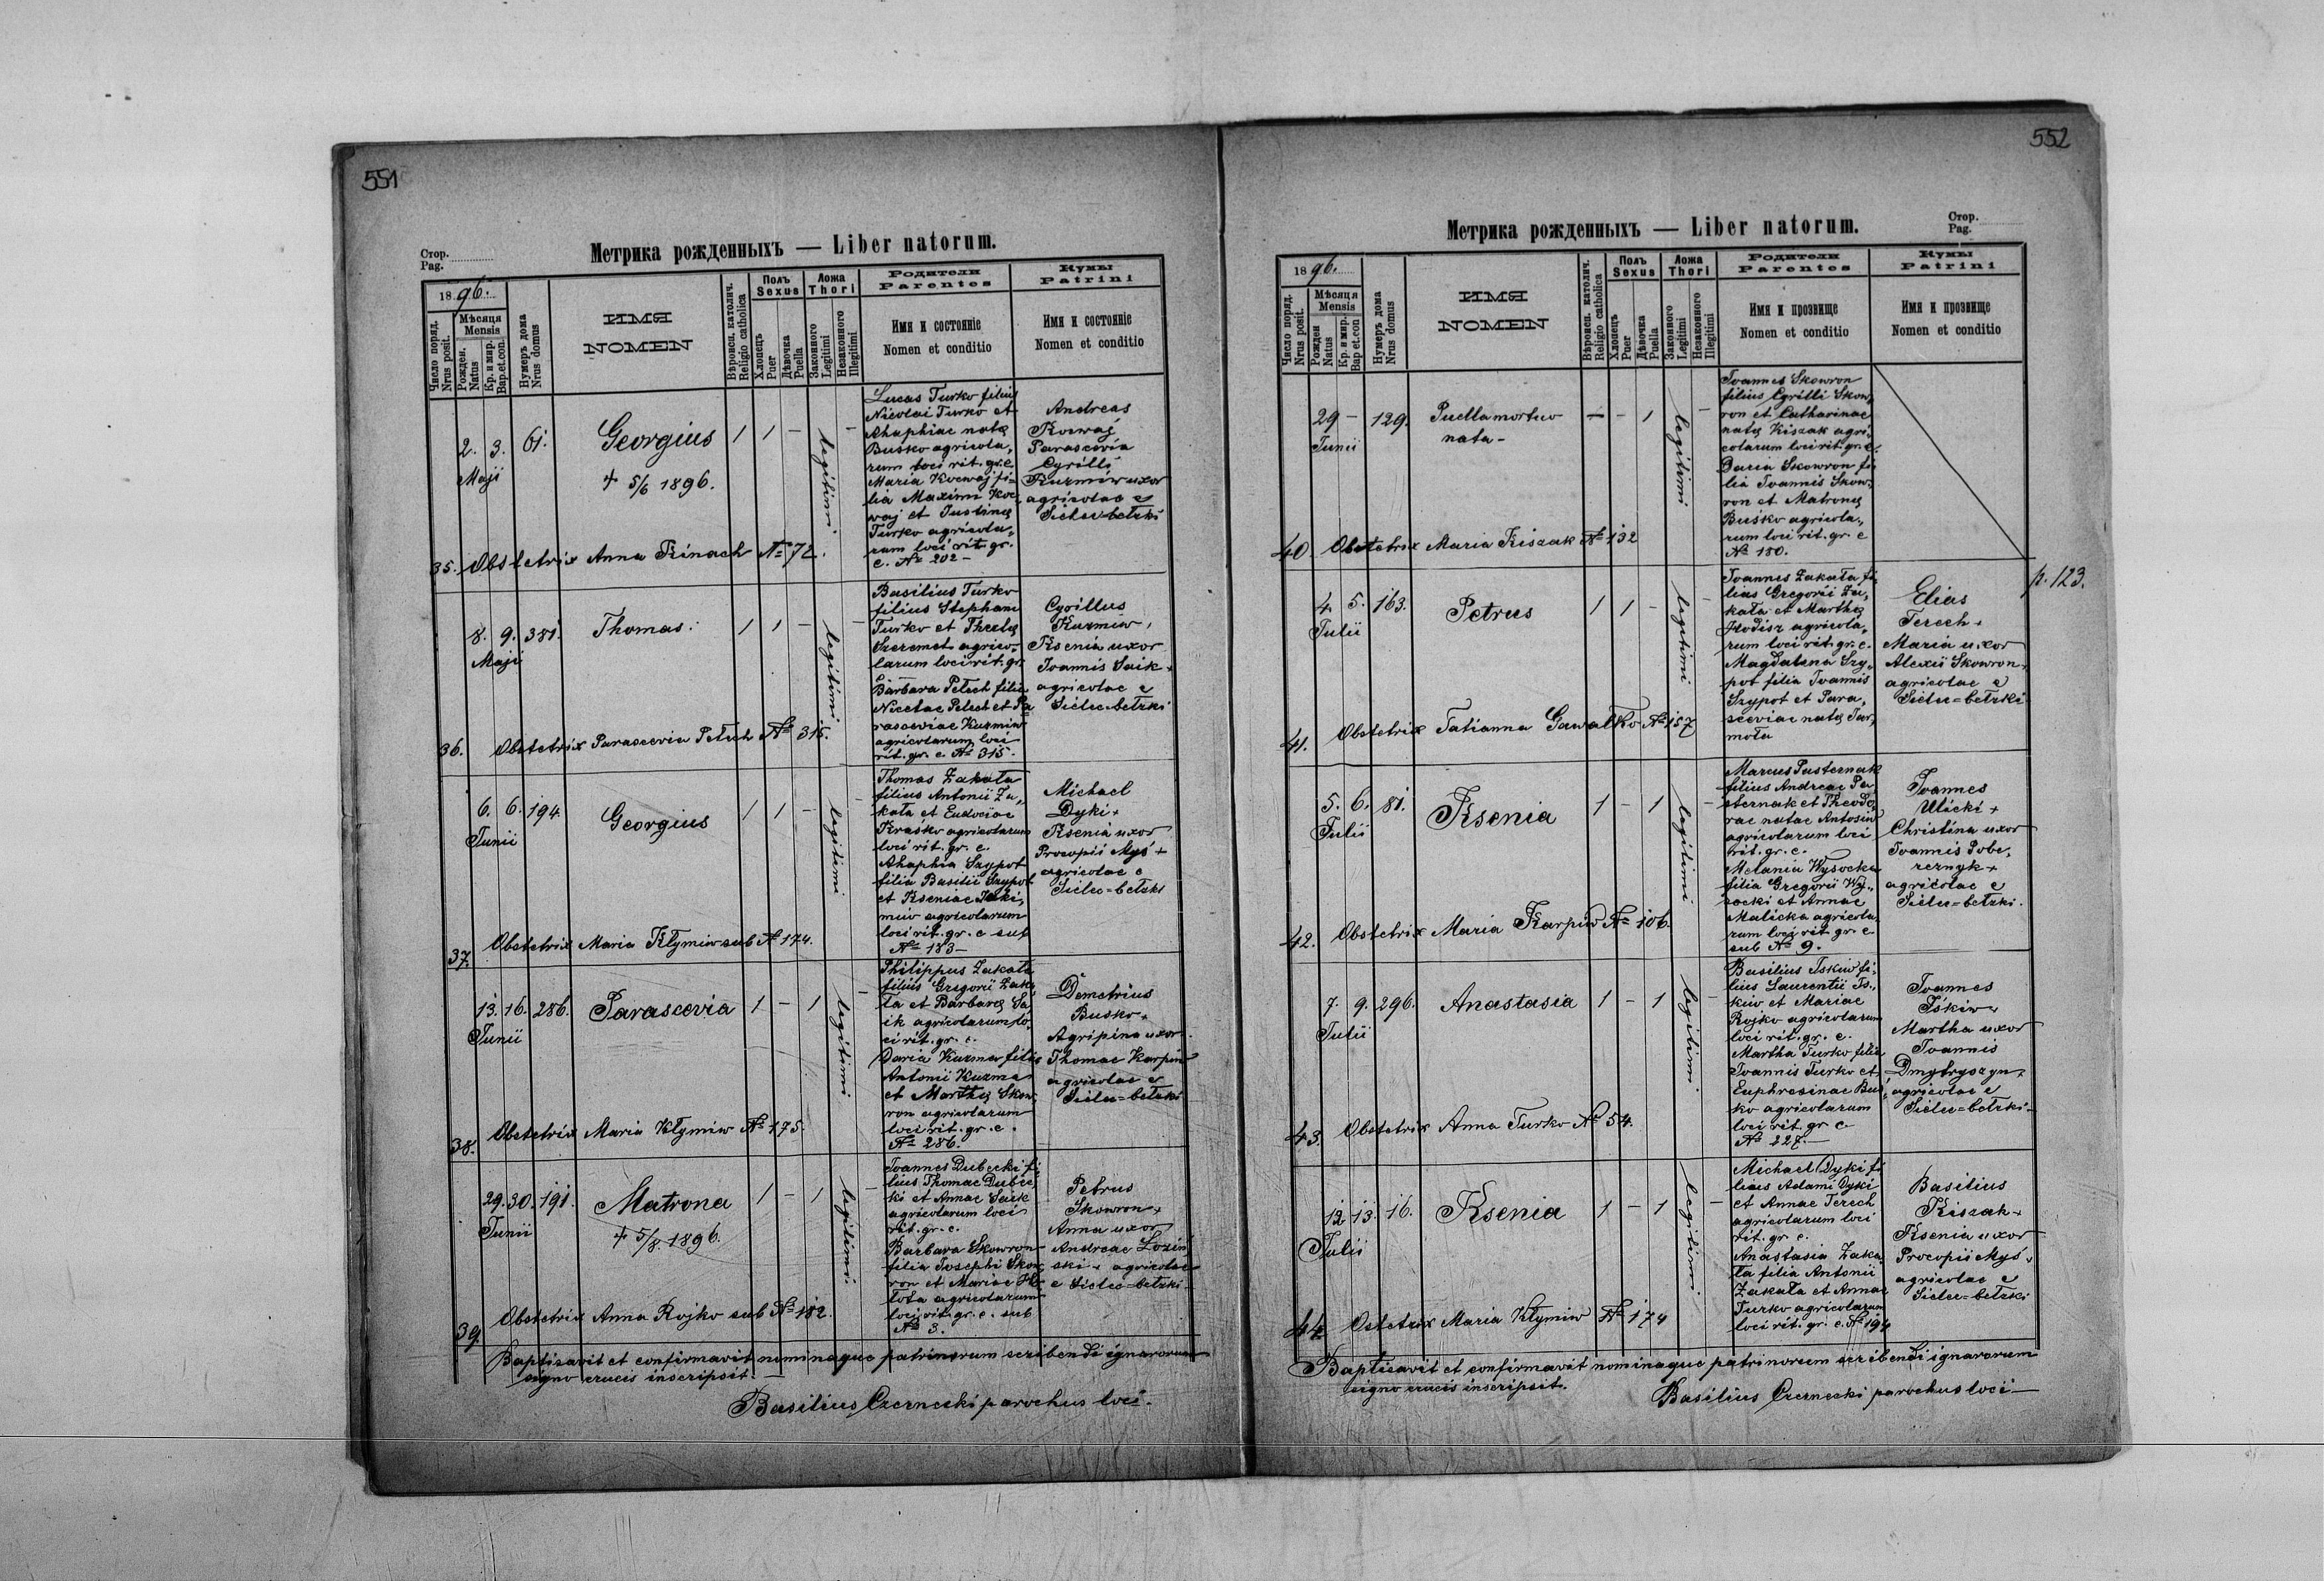 551
Стор.
Pag.
Метрика рожденныхъ — Liber natorum.
1896.
Число поряд.
Nrus posit.
Мѣсяця
Mensis
Рожден.
Natus
Кр. и мир.
Bap.et.con.
Нумеръ дома
Nrus domus
ИМЯ
NOMEN
Вѣроисп. католич.
Religio catholica
Полъ
Sexus
Хлопець
Puer
Дѣвочка
Puella
Ложа
Thori
Законного
Legitimi
Незаконного
Illegitimi
Родители
Parentes
Имя и состоянiе
Nomen et conditio
Кумы
Patrini
Имя и состоянiе
Nomen et conditio
35.
2. 3.
Maji
61.
Georgius
+ 5/6 1896.
1 1 -
legitimi
-
Lucas Turko filius
Nicolai Turko et
Ahaphiae natę
Busko agricola„
rum loci rit. gr. c.
Maria Kocwaj fi-
lia Maximi Koc„
waj et Justinę
Turko agricola„
rum loci rit. gr.
c. № 202 -
Andreas
Kocwaj
Parascevia
Cyrilli
Kuzmiw uxor
agricolae e
Sielec-bełzki
Obstetrix Anna Kinach № 72.
36.
8. 9.
Maji
381.
Thomas.
1 1 -
legitimi
-
Basilius Turko
filius Stephani
Turko et Theclę
Szeremet agrico-
larum loci rit. gr.
c. -
Barbara Petech filia
Nicetae Petech et Pa
rasceviae Kuzmiw
agricolarum loci
rit. gr. c. № 315.
Cyrillus
Kuzmiw,
Ksenia uxor
Joannis Saik +
agricolae e
Sielec-bełzki
Obstetrix Parascevia Petech № 315.
37.
6. 6.
Junii
194.
Georgius
1 1 -
legitimi
-
Thomas Zakała
filius Antonii Za„
kała et Eudociae
Kraśko agricolarum
loci rit. gr. c.
Ahaphia Szypot
filia Basilii Szypot
et Kseniae Jaki„
miw agricolarum
loci rit. gr. c sub
№ 183 -
Michael
Dyki +
Ksenia uxor
Procopii Myś +
agricolae e
Sielec=bełzki
Obstetrix Maria Kłymiw sub № 174.
38.
13. 16.
Junii
286.
Parascevia
1 - 1
legitimi
-
Philippus Zakała
filius Gregorii Zaka
ła et Barbarę Sa
ik agricolarum lo„
ci rit. gr. c.
Daria Kuzma filia
Antonii Kuzma
et Marthę Skow„
ron agricolarum
loci rit. gr. c.
№ 286.
Demetrius
Busko +
Agripina uxor
Thomae Karpiw
agricolae e
Sielec=bełzki
Obstetrix Maria Kłymiw № 175.
39.
29. 30.
Junii
191.
Matrona
+ 5/8. 1896.
1 - 1
legitimi.
-
Joannes Dubecki fi„
lius Thomae Dubec„
ki et Annae Saik
agricolarum loci
rit. gr. c.
Barbara Skowron
filia Josephi Skow„
ron et Mariae Ho
łota agricolarum
loci rit. gr. c. sub
№ 3.
Petrus
Skowron +
Anna uxor
Andreae Loziń
ski + agricolae
e Sielec=bełzki
Obstetrix Anna Rojko sub № 182.
Baptisavit et confirmavit nominaque patrinorum scribendi ignarorum
signo crucis inscripsit. -
Basilius Czernecki parochus loci.
552
Метрика рожденныхъ — Liber natorum.
Стор.
Pag.
1896.
Число поряд.
Nrus posit.
Мѣсяця
Mensis
Рожден
Natus
Кр. и мир.
Bap et.con
Нумеръ дома
Nrus domus
ИМЯ
NOMEN
Вѣроисп. католич.
Religio catholica
Полъ
Sexus
Хлопець
Puer
Дѣвочка
Puella
Ложа
Thori
Законного
Legitimi
Незаконного
Illegitimi
Родители
Parentes
Имя и прозвище
Nomen et conditio
Кумы
Patrini
Имя и прозвище
Nomen et conditio
40
29 -
Junii
129.
Puella mortuo
nata -
- - 1
legitimi
-
Joannes Skowron
filius Cyrilli Skow„
ron et Catharinae
natę Kiszak agri„
colarum loci rit. gr. c.
Daria Skowron fi
lia Joannis Skow„
ron et Matronę
Buśko agricola„
rum loci rit. gr. c
№ 180.
Obstetrix Maria Kiszak № 132
41.
4. 5.
Julii
163.
Petrus
1 1 -
legitimi
-
Joannes Zakała fi
lius Gregorii Za„
kała et Marthę
Hodisz agricola„
rum loci rit. gr. c.
Magdalena Szy„
pot filia Joannis
Szypot et Para„
sceviae natę Jar„
moła
Elias
Terech +
Maria uxor
Alexii Skowron +
agricolae e
Sielec=bełzki
p. 123.
Obstetrix Tatianna Gawałko № 157
42.
5. 6.
Julii
81.
Ksenia
1 - 1
legitimi
-
Marcus Pasternak
filius Andreae Pa
sternak et Theodo„
rae natae Antosiw
agricolarum loci
rit. gr. c.
Melania Wysocka
filia Gregorii Wy„
socki et Annae
Malicka agricola„
rum loci rit gr. c
sub № 9.
Joannes
Ulicki +
Christina uxor
Joannis Pobe„
reznyk +
agricolae e
Sielec=bełzki.
Obstetrix Maria Karpiw № 106.
43.
7. 9.
Julii
296.
Anastasia
1 - 1
legitimi
-
Basilius Iskiw fi„
lius Laurentii Is„
kiw et Mariae
Rojko agricolarum
loci rit. gr. c.
Martha Turko filia
Joannis Turko et
Euphrosinae Bus„
ko agricolarum
loci rit. gr c
№ 227. -
Joannes
Iskiw +
Martha uxor
Joannis
Dmytryszyn +
agricolae e
Sielec=bełzki -
Obstetrix Anna Turko № 54.
44
12 13.
Julii
16.
Ksenia
1 - 1
legitimi
-
Michael Dyki fi
lius Adami Dyki
et Annae Terech
agricolarum loci
rit. gr c.
Anastasia Zaka„
ła filia Antonii
Zakała et Annae
Turko agricolarum
loci rit. gr. c. № 194
Basilius
Kiszak +
Ksenia uxor
Procopii Myś +
agricolae e
Sielec=bełzki
Ostetrix Maria Kłymiw № 174
Baptisavit et confirmavit nominaque patrinorum scribendi ignarorum
signo crucis inscripsit.
Basilius Czernecki parochus loci -